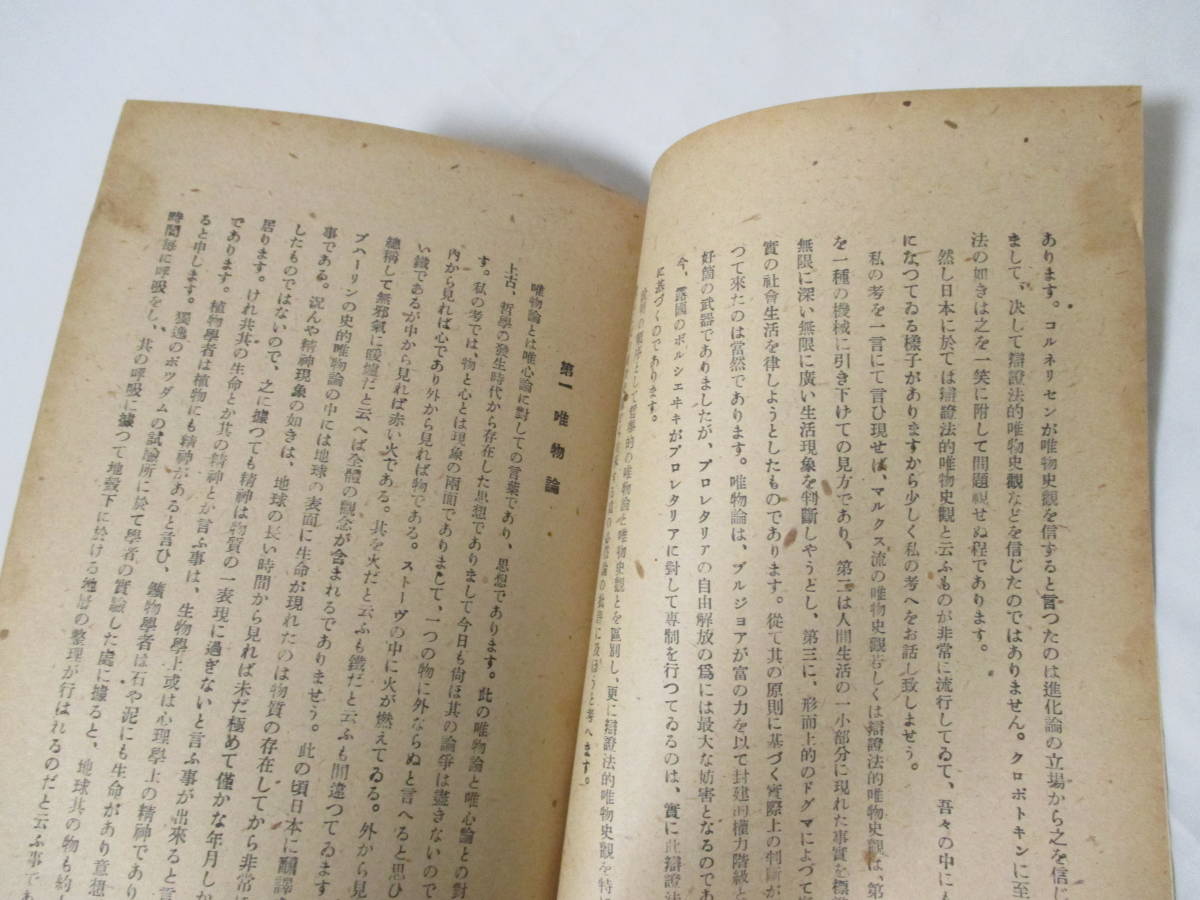 あります。コルネリセンが唯物史觀を信ずると言つたのは進化論の立場から之を信じ
まして、決して辯證法的唯物史觀などを信じたのではありません。クロポトキンに至
法の如きは之を一笑に附して問題視せぬ程であります。
然し日本に於ては辯證法的唯物史觀と云ふものが非常に流行してゐて、吾々の中にも
になつてゐる樣子がありますから少しく私の考へをお話し致しませう。
私の考を一言にて言ひ現せば、マルクス流の唯物史觀若しくは辯證法的唯物史觀は、第
を一種の機械に引き下げての見方であり、第二は人間生活の一小部分に現れた事實を標
無限に深い無限に廣い生活現象を判斷しやうとし、第三に、形而上的のドグマによつて
實の社會生活を律しようとしたものであります。從て其の原則に基づく實際上の判斷が
つて來たのは當然であります。唯物論は、ブルジョアが富の力を以て封建的權力階級と
好箇の武器でありましたが、プロレタリアの自由解放の爲には最大な妨害となるのであ
今、露國のボルシェヰキがプロレタリアに對して專制を行つてゐるのは、實に此辯證法
に基づくのであります。
順序として哲學的の唯物論と唯物史觀とを區別し、更に辯證法的唯物史觀を特
の批評に及ぼうと考へます。
第一 唯物論
唯物論とは唯心論に對しての言葉であり、思想であります。此の唯物論と唯心論との對
上古、哲學の發生時代から存在した思想でありまして今日も尙ほ其の論爭は盡きないので
す。私の考では、物と心とは現象の兩面でありまして、一つの物に外ならぬと言へると思ひ
内から見れば心であり外から見れば物である。ストーヴの中に火が燃えてゐる。外から見
い鐵であるが中から見れば赤い火である。其を火だと云ふも鐵だと云ふも間違つてゐます
總稱して無邪氣に暖爐だと云へば全體の觀念が含まれるでありませう。此の頃日本に飜譯
ブハーリンの史的唯物論の中には地球の表面に生命が現れたのは物質の存在してから非常
事である。況んや精神現象の如きは、地球の長い時間から見れば未だ極めて僅かな年月しか
したものではないので、之に據つても精神は物質の一表現に過ぎないと言ふ事が出來ると言
居ります。けれ共其の生命とか其の精神とか言ふ事は、生物學上或は心理學上の精神であり
であります。植物學者は植物にも精神があると言ひ、鑛物學者は石や泥にも生命があり意想
ると申します。獨逸のポツダムの試驗所に於て學者の實驗した處に據ると、地球其の物も約
時間每に呼吸をし、其の呼吸に據つて地殼下に於ける地層の整理が行はれるのだと云ふ事で